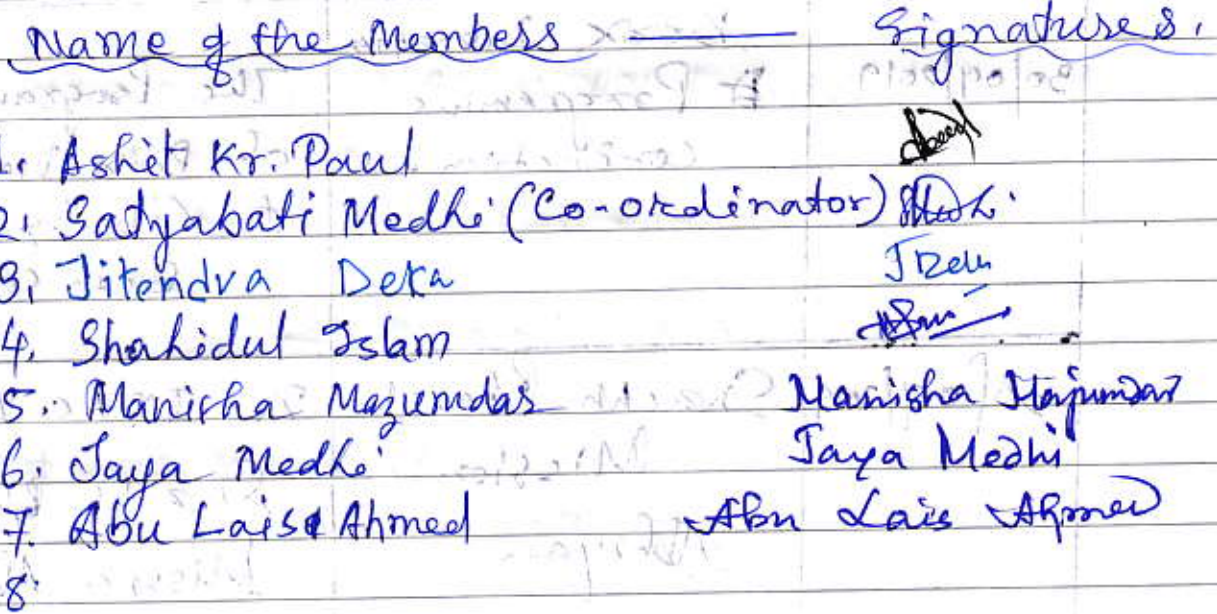 Name of the Members — Signatures.
1. Ashit Kr. Paul
2. Satyabati Medhi (Co-ordinator) Medhi.
3. Jitendra Deka JDeka
4. Shahidul Islam
5. Manisha Mazumdar Manisha Majumdar
6. Jaya Medhi Jaya Medhi
7. Abu Lais Ahmed Abu Lais Ahmed
8.